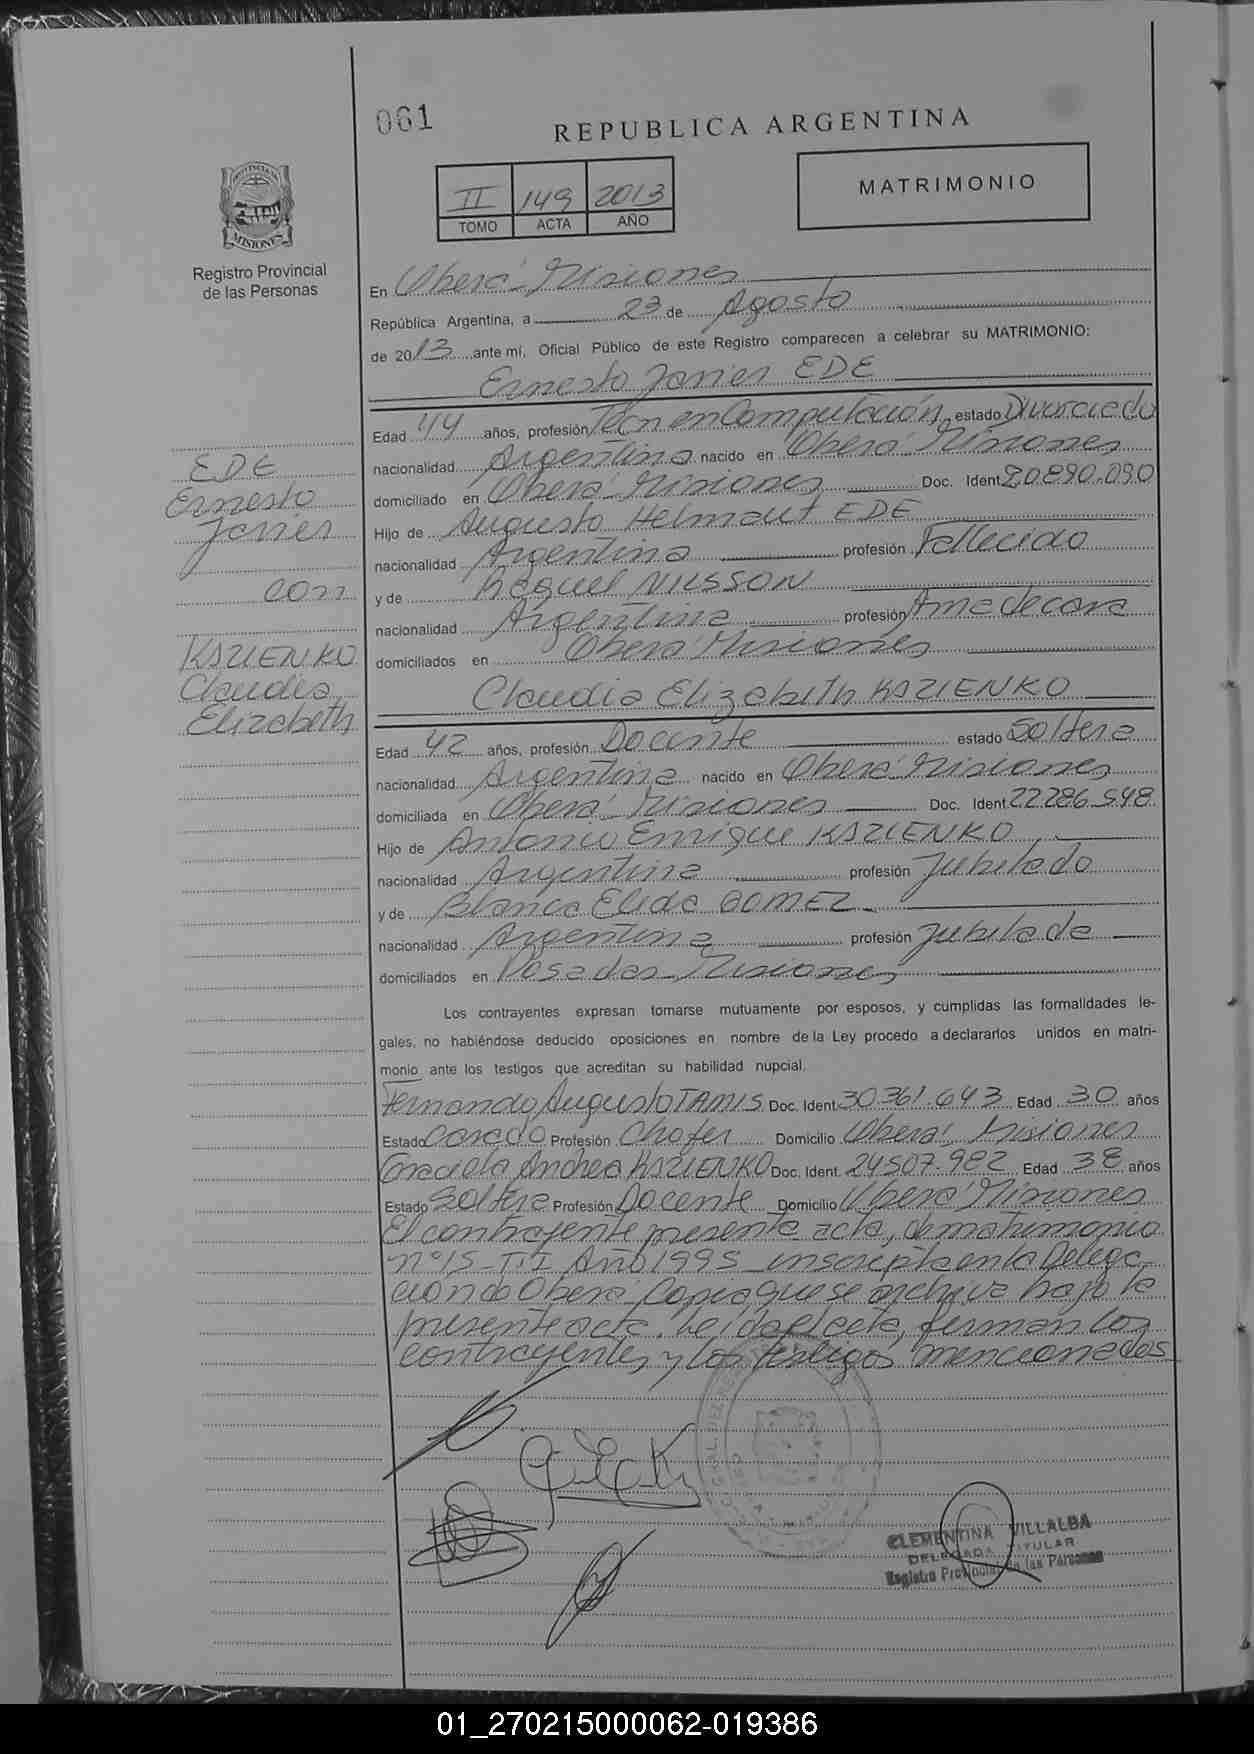 061
REPUBLICA ARGENTINA
II 149 2013
TOMO ACTA AÑO
MATRIMONIO
PROVINCIA DE
MISIONES
Registro Provincial
de las Personas
En Oberá - Misiones
República Argentina, a 23 de Agosto
de 2013 ante mí, Oficial Público de este Registro comparecen a celebrar su MATRIMONIO:
Ernesto Javier EDE
Edad 44 años, profesión Tecn en Computación estado Divorciado
nacionalidad Argentina nacido en Oberá Misiones
domiciliado en Oberá - Misiones Doc. Ident 20.890.090
Hijo de Augusto Helmaut EDE
nacionalidad Argentina profesión Fallecido
y de Raquel NILSSON
nacionalidad Argentina profesión Ama de casa
domiciliados en Oberá Misiones
EDE
Ernesto
Javier
con
KAZIENKO
Claudia
Elizabeth
Claudia Elizabeth KAZIENKO
Edad 42 años, profesión Docente estado Soltera
nacionalidad Argentina nacido en Oberá Misiones
domiciliada en Oberá - Misiones Doc. Ident 22.286.548
Hijo de Antonio Enrique KAZIENKO
nacionalidad Argentina profesión Jubilado
y de Blanca Elida GOMEZ
nacionalidad Argentina profesión Jubilada
domiciliados en Posadas - Misiones
Los contrayentes expresan tomarse mutuamente por esposos, y cumplidas las formalidades le-
gales, no habiéndose deducido oposiciones en nombre de la Ley procedo a declararlos unidos en matri-
monio ante los testigos que acreditan su habilidad nupcial.
Fernando Augusto TANIS Doc. Ident 30.361.643 Edad 30 años
Estado Casado Profesión Chofer Domicilio Oberá - Misiones
Graciela Andrea KAZIENKO Doc. Ident. 24507.982 Edad 38 años
Estado Soltera Profesión Docente Domicilio Oberá Misiones
El contrayente presenta acta de matrimonio
nº 15 - T: I Año 1995 inscripta en la Delega
ción de Oberá Copia que se archiva bajo la
presente acta. Leída el acta, firman los
contrayentes y los testigos mencionados
CLEMENTINA VILLALBA
DELEGADA TITULAR
Registro Provincial de las Personas
01_270215000062-019386